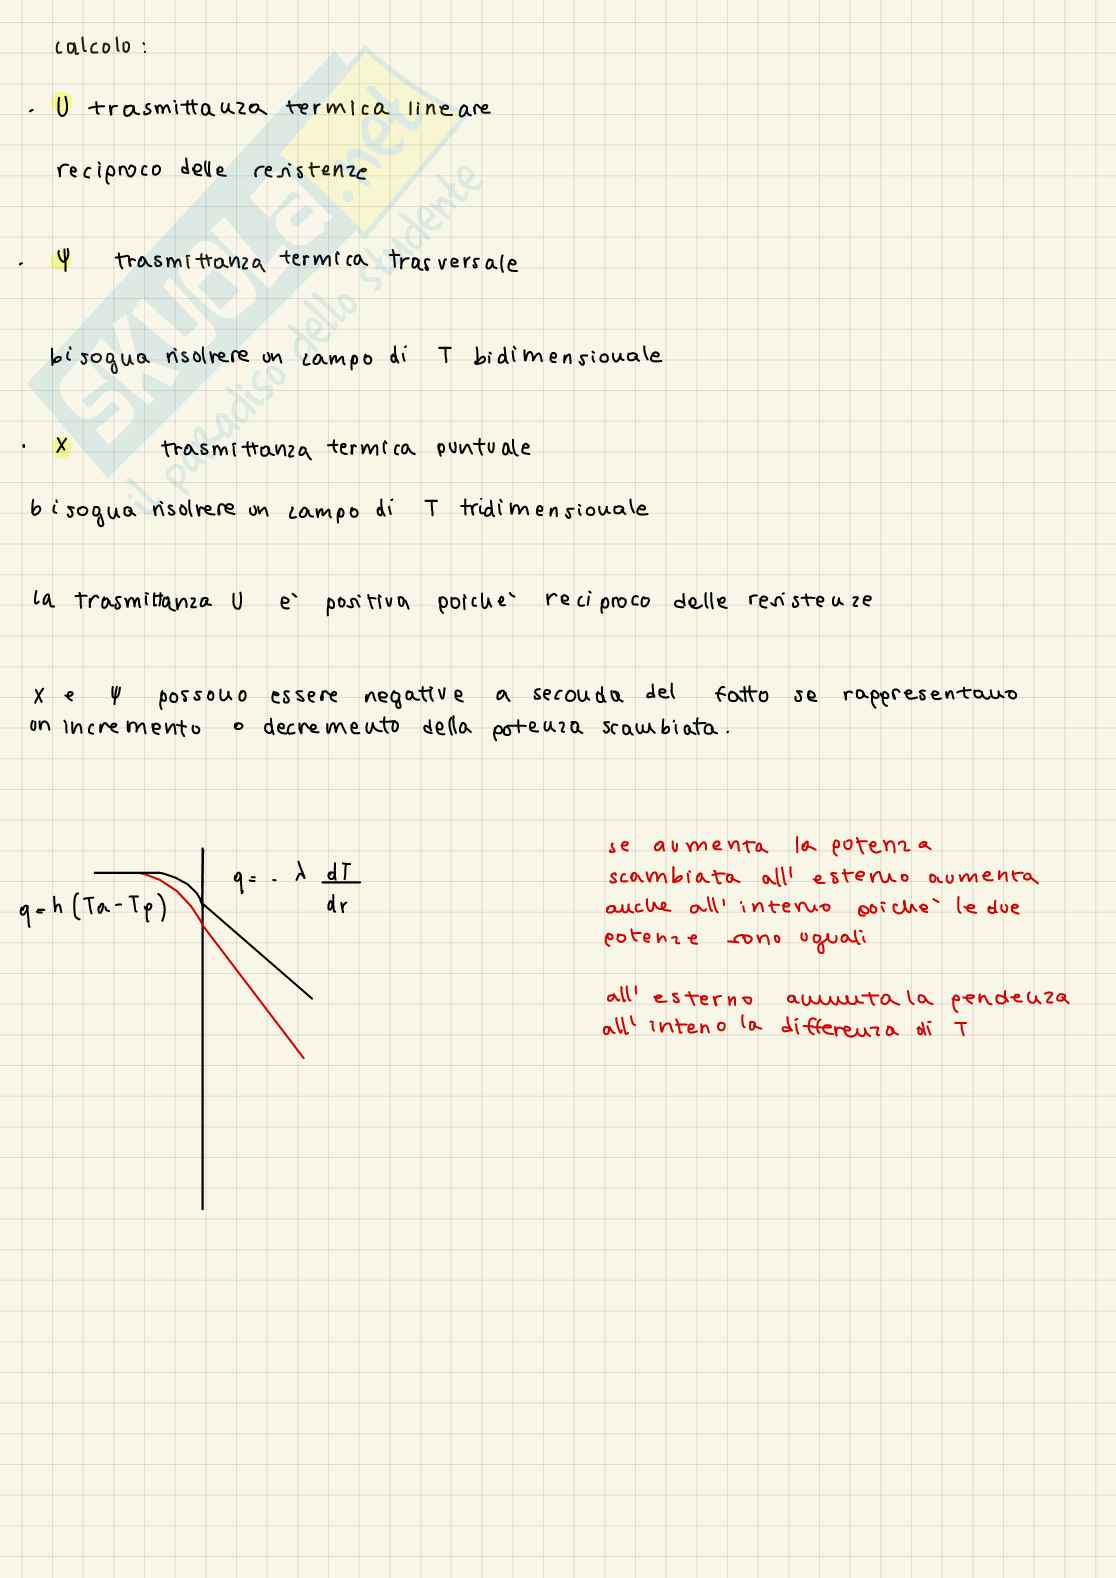 calcolo:
. U trasmittanza termica lineare
reciproco delle resistenze
. ψ trasmittanza termica trasversale
bisogna risolvere un campo di T bidimensionale
. X trasmittanza termica puntuale
bisogna risolvere un campo di T tridimensionale
la trasmittanza U e` positiva poiche` reciproco delle resistenze
X e ψ possono essere negative a seconda del fatto se rappresentano
un incremento o decremento della potenza scambiata.
q = - λ dT/dr
q = h (Ta - Tp)
se aumenta la potenza
scambiata all' esterno aumenta
anche all' interno poiche` le due
potenze sono uguali
all' esterno aumenta la pendenza
all' inteno la differenza di T
SKUOLA.net
il paradiso dello studente